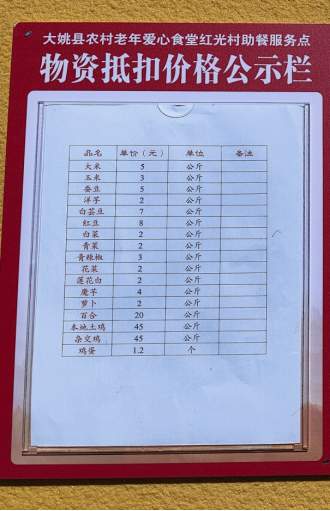 大姚县农村老年爱心食堂红光村助餐服务点
物资抵扣价格公示栏
品名 单价（元） 单位 备注
大米 5 公斤
玉米 3 公斤
蚕豆 5 公斤
洋芋 2 公斤
白芸豆 7 公斤
红豆 8 公斤
白菜 2 公斤
青菜 2 公斤
青辣椒 3 公斤
花菜 2 公斤
莲花白 2 公斤
魔芋 4 公斤
萝卜 2 公斤
百合 20 公斤
本地土鸡 45 公斤
杂交鸡 45 公斤
鸡蛋 1.2 个